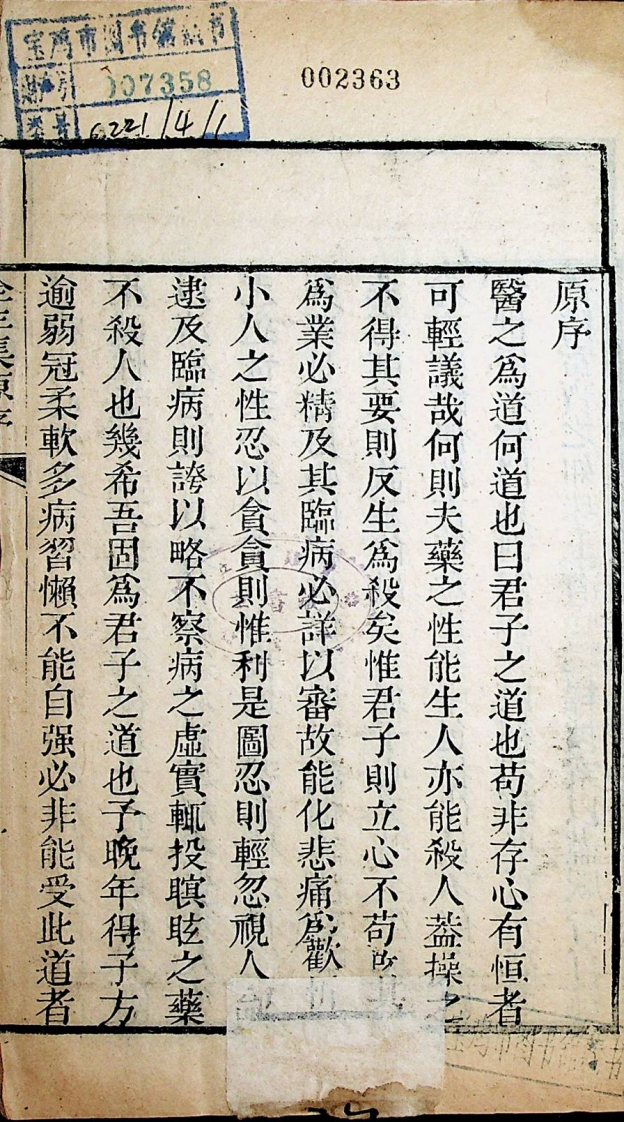 宝鸡市图书馆藏书
索引 007358
类号 6221/4/1
002363
原序
醫之爲道何道也曰君子之道也苟非存心有恒者
可輕議哉何則夫藥之性能生人亦能殺人葢操之
不得其要則反生爲殺矣惟君子則立心不苟故其
爲業必精及其臨病必詳以審故能化悲痛爲歡
小人之性忍以貪貪則惟利是圖忍則輕忽視人
逮及臨病則誇以略不察病之虛實輒投瞑眩之藥
不殺人也幾希吾固爲君子之道也予晚年得子方
逾弱冠柔軟多病習懶不能自强必非能受此道者
全生集原序